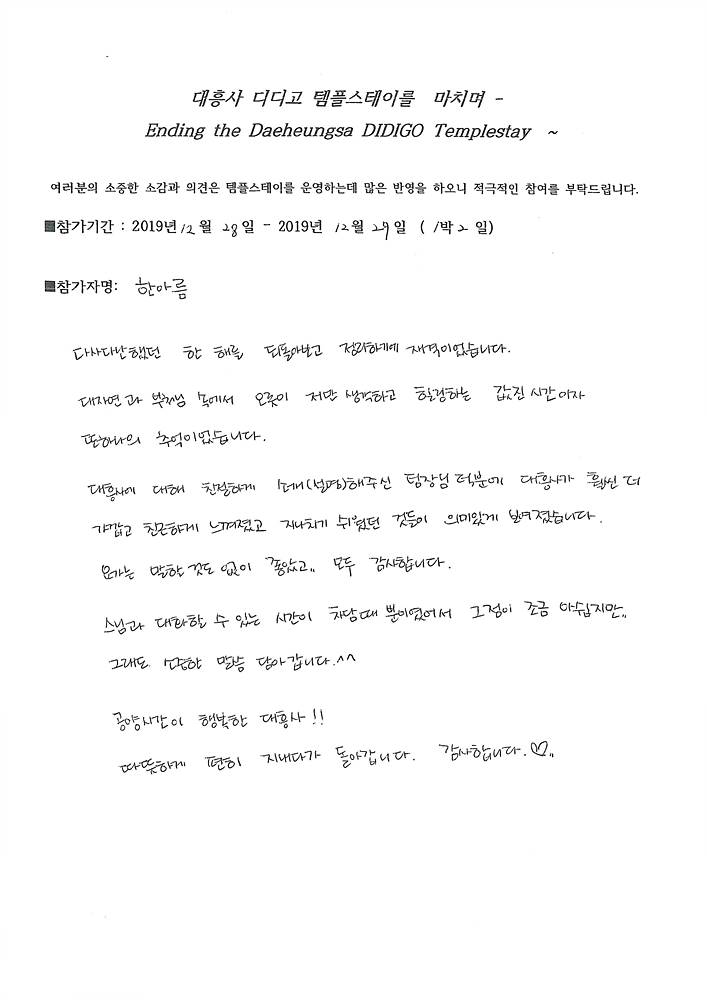 대흥사 디디고 템플스테이를 마치며 -
Ending the Daeheungsa DIDIGO Templestay ~
여러분의 소중한 소감과 의견은 템플스테이를 운영하는데 많은 반영을 하오니 적극적인 참여를 부탁드립니다.
■참가기간 : 2019년 12월 28일 - 2019년 12월 29일 ( 1박 2 일)
■참가자명: 한아름
다사다난했던 한 해를 되돌아보고 정리하기에 제격이었습니다.
대자연과 부처님 속에서 오롯이 저만 생각하고 힐링하는 값진 시간이자
또하나의 추억이었습니다.
대흥사에 대해 친절하게 소개(설명)해주신 팀장님 덕분에 대흥사가 훨씬 더
가깝고 친근하게 느껴졌고 지나치기 쉬웠던 것들이 의미있게 보여졌습니다.
요가는 말할 것도 없이 좋았고,, 모두 감사합니다.
스님과 대화할 수 있는 시간이 차담때 뿐이였어서 그점이 조금 아쉽지만,,
그래도 소중한 말씀 담아갑니다.^^
공양시간이 행복한 대흥사!!
따뜻하게 편히 지내다가 돌아갑니다. 감사합니다.♡,,